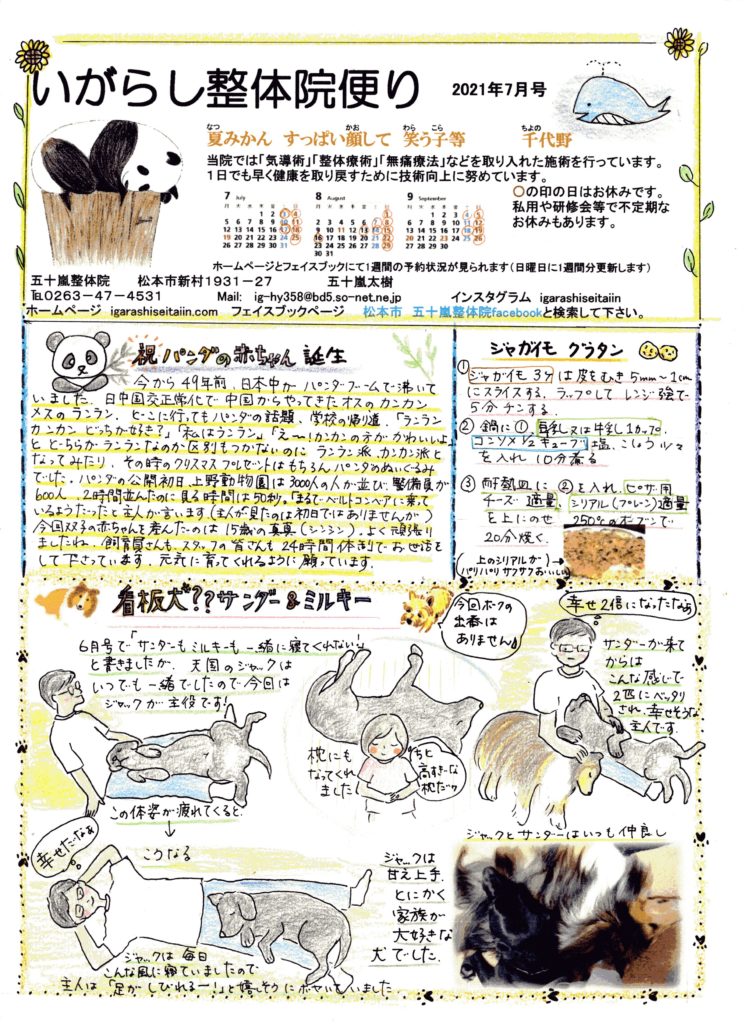 いがらし整体院便り
2021年7月号
夏みかん すっぱい顔して 笑う子等 千代野
なつ かお わら こら ちよの
当院では「気導術」「整体療術」「無痛療法」などを取り入れた施術を行っています。
1日でも早く健康を取り戻すために技術向上に努めています。
7 July
8 August
9 September
○の印の日はお休みです。
私用や研修会等で不定期な
お休みもあります。
ホームページとフェイスブックにて1週間の予約状況が見られます(日曜日に1週間分更新します)
五十嵐整体院 松本市新村1931-27 五十嵐太樹
℡0263-47-4531 Mail: ig-hy358@bd5.so-net.ne.jp インスタグラム igarashiseitaiin
ホームページ igarashiseitaiin.com フェイスブックページ 松本市 五十嵐整体院facebookと検索して下さい。
祝 パンダの赤ちゃん 誕生
今から49年前、日本中がパンダブームで沸いて
いました。日中国交正常化で中国からやってきたオスのカンカン
メスのランラン、どこに行ってもパンダの話題、学校の帰り道、「ランラン
カンカン どっちが好き?」「私はランラン」「え〜!カンカンの方がかわいいよ」
と どちらがランランなのか区別もつかないのに ランラン派、カンカン派と
なってみたり、その時のクリスマスプレゼントはもちろんパンダのぬいぐるみ
でした。パンダの公開初日、上野動物園は3000人の人が並び、警備員が
600人、2時間並んだのに見る時間は50秒。「まるでベルトコンベアに乗って
いるようだった」と主人が言います(主人が見たのは初日ではありませんが)
今回双子の赤ちゃんを産んだのは15歳の真真(シンシン)、よく頑張り
ましたね、飼育員さんも、スタッフの皆さんも24時間体制でお世話を
して下さっています。元気に育ってくれるように願っています。
ジャガイモ グラタン
① ジャガイモ3ケは皮をむき5mm〜1cm
にスライスする。ラップしてレンジ強で
5分チンする。
② 鍋に①、豆乳又は牛乳1カップ、
コンソメ1/2キューブ、塩、こしょう少々
を入れ 10分煮る
③ 耐熱皿に②を入れ、ピザ用
チーズ適量、シリアル(プレーン)適量
を上にのせ 250℃のオーブンで
20分焼く。
(上のシリアルが
パリパリサクサクおいしい)
看板犬??サンダー&ミルキー
今回ボクの
出番は
ありません
幸せ2倍になったなぁ
6月号で「サンダーもミルキーも一緒に寝てくれない!」
と書きましたが、天国のジャックは
いつでも一緒でしたので今回は
ジャックが主役です!
サンダーが来て
からは
こんな感じで
2匹にベッタリ
され、幸せそうな
主人です。
枕にも
なってくれ
ました
ちと
高すぎーな
枕だワ
この体姿が疲れてくると、
こうなる
幸せだなぁ
ジャックとサンダーはいつも仲良し
ジャックは
甘え上手、
とにかく
家族が
大好きな
犬でした。
ジャックは毎日
こんな風に寝ていましたので
主人は「足がしびれるー!」と嬉しそうにボヤいていました